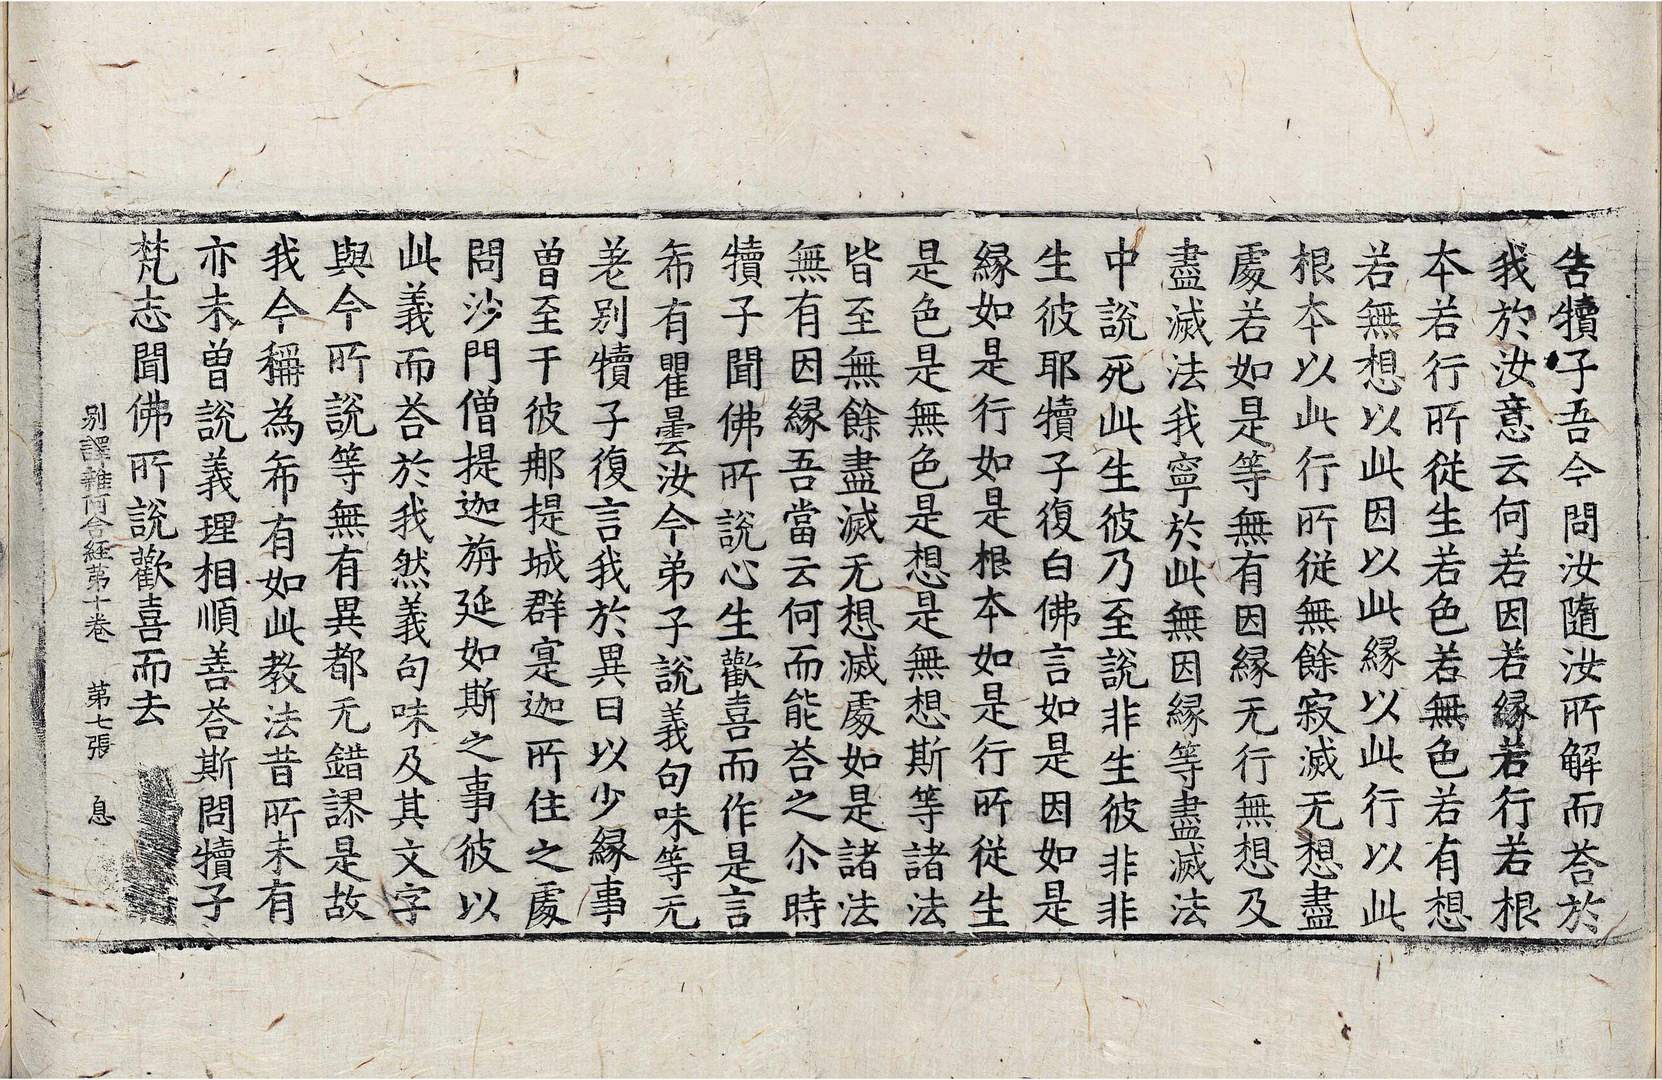 告犢子吾今問汝隨汝所解而荅於
我於汝意云何若因若緣若行若根
本若行所從生若色若無色若有想
若無想以此因以此緣以此行以此
根本以此行所從無餘寂滅无想盡
處若如是等無有因緣无行無想及
盡滅法我寧於此無因緣等盡滅法
中說死此生彼乃至說非生彼非非
生彼耶犢子復白佛言如是因如是
緣如是行如是根本如是行所從生
是色是無色是想是無想斯等諸法
皆至無餘盡滅无想滅處如是諸法
無有因緣吾當云何而能荅之尒時
犢子聞佛所說心生歡喜而作是言
希有瞿曇汝今弟子說義句味等无
差別犢子復言我於異日以少緣事
曾至于彼那提城群寔迦所住之處
問沙門僧提迦旃延如斯之事彼以
此義而荅於我然義句味及其文字
與今所說等無有異都无錯謬是故
我今稱為希有如此教法昔所未有
亦未曾說義理相順善荅斯問犢子
梵志聞佛所說歡喜而去
別譯雜阿含經第十卷　第七張　息